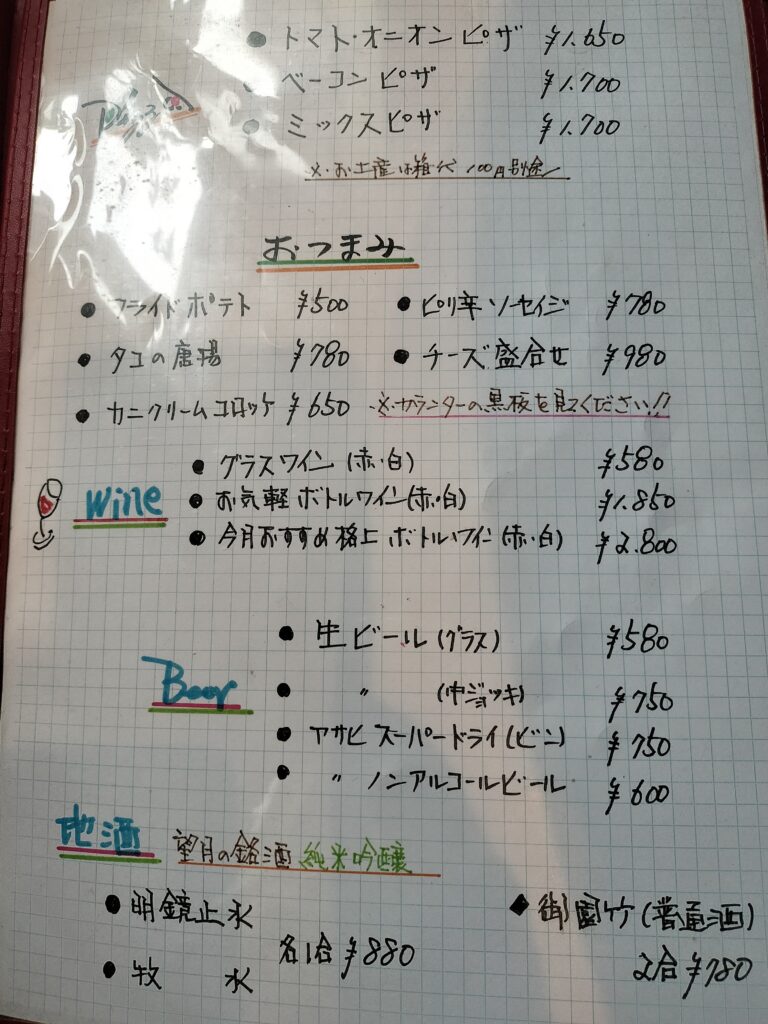 トマト・オニオンピザ ¥1.650
ベーコンピザ ¥1.700
Pizza
ミックスピザ ¥1.700
※お土産は箱代100円別途
おつまみ
フライドポテト ¥500 ピリ辛ソーセイジ ¥780
タコの唐揚 ¥780 チーズ盛合せ ¥980
カニクリームコロッケ ¥650 ※カウンターの黒板を見てください!!
グラスワイン(赤・白) ¥580
Wine お気軽ボトルワイン(赤・白) ¥1.850
今月おすすめ格上ボトルワイン(赤・白) ¥2.800
生ビール(グラス) ¥580
Beer 〃 (中ジョッキ) ¥750
アサヒスーパードライ(ビン) ¥750
〃 ノンアルコールビール ¥600
地酒 望月の銘酒 純米吟醸
明鏡止水 御園竹(普通酒)
各1合 ¥880 2合 ¥780
牧水